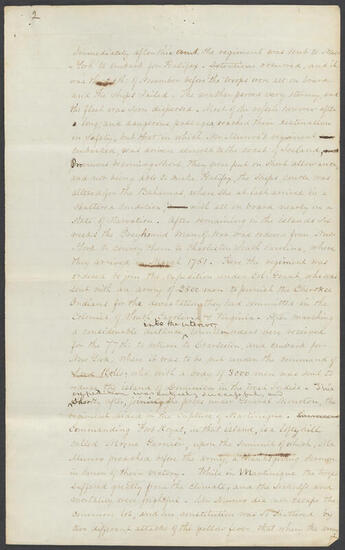 2
Immediately after this event the regiment was sent to New
York to embark for Halifax. Detentions occurred, and it
was the 24th of November before the troops were all on board
and the Ships Sailed. The weather proved very stormy, and
the fleet was soon dispersed. Most of the vessels however after
a long and dangerous passage reached their destination
in Safety, but that in which Mr Munro's regiment
embarked, was driven almost to the coast of Iceland
Provisions becoming Short, they were put on Short allowance
and not being able to make Halifax, the Ships course was
altered for the Bahamas, where she at last arrived in a
Shattered condition with all on board nearly in a
State of Starvation. After remaining in the island
weeks the Greyhound Man of War was ordered from New
York to convey them to Charleston South Carolina, where
they arrived March 1761. Here the regiment was
ordered to join the expedition under Col. Grant, who was
sent with an army of 2800 men to punish the Cherokee
Indians for the devastations they had committed in the
Colonies of South Carolina & Virginia. After marching
into the interior
a considerable distance were received
for the 77th to return to Charleston, and embark for
New York, where it was to be put under the command of
Lord Rollo, who with a body of 3000 men was sent to
reduce the island of Dominica in the West Indies. This
expedition was entirely successful, and
Shortly after, General Monckton, the
regiment aided in the capture of Martinique.
Commanding Fort Royal, in that island, is a lofty hill
called Morne Garnier, upon the Summit of which, Mr
Munro preached before the army, a thanksgiving Sermon
in honor of their victory. While in Martinique the troops
suffered greatly from the climate, and the Sickness and
mortality were frightful. Mr Munro did not escape the
common lot, and his constitution was so shattered by
two different attacks of the yellow fever, that when the army